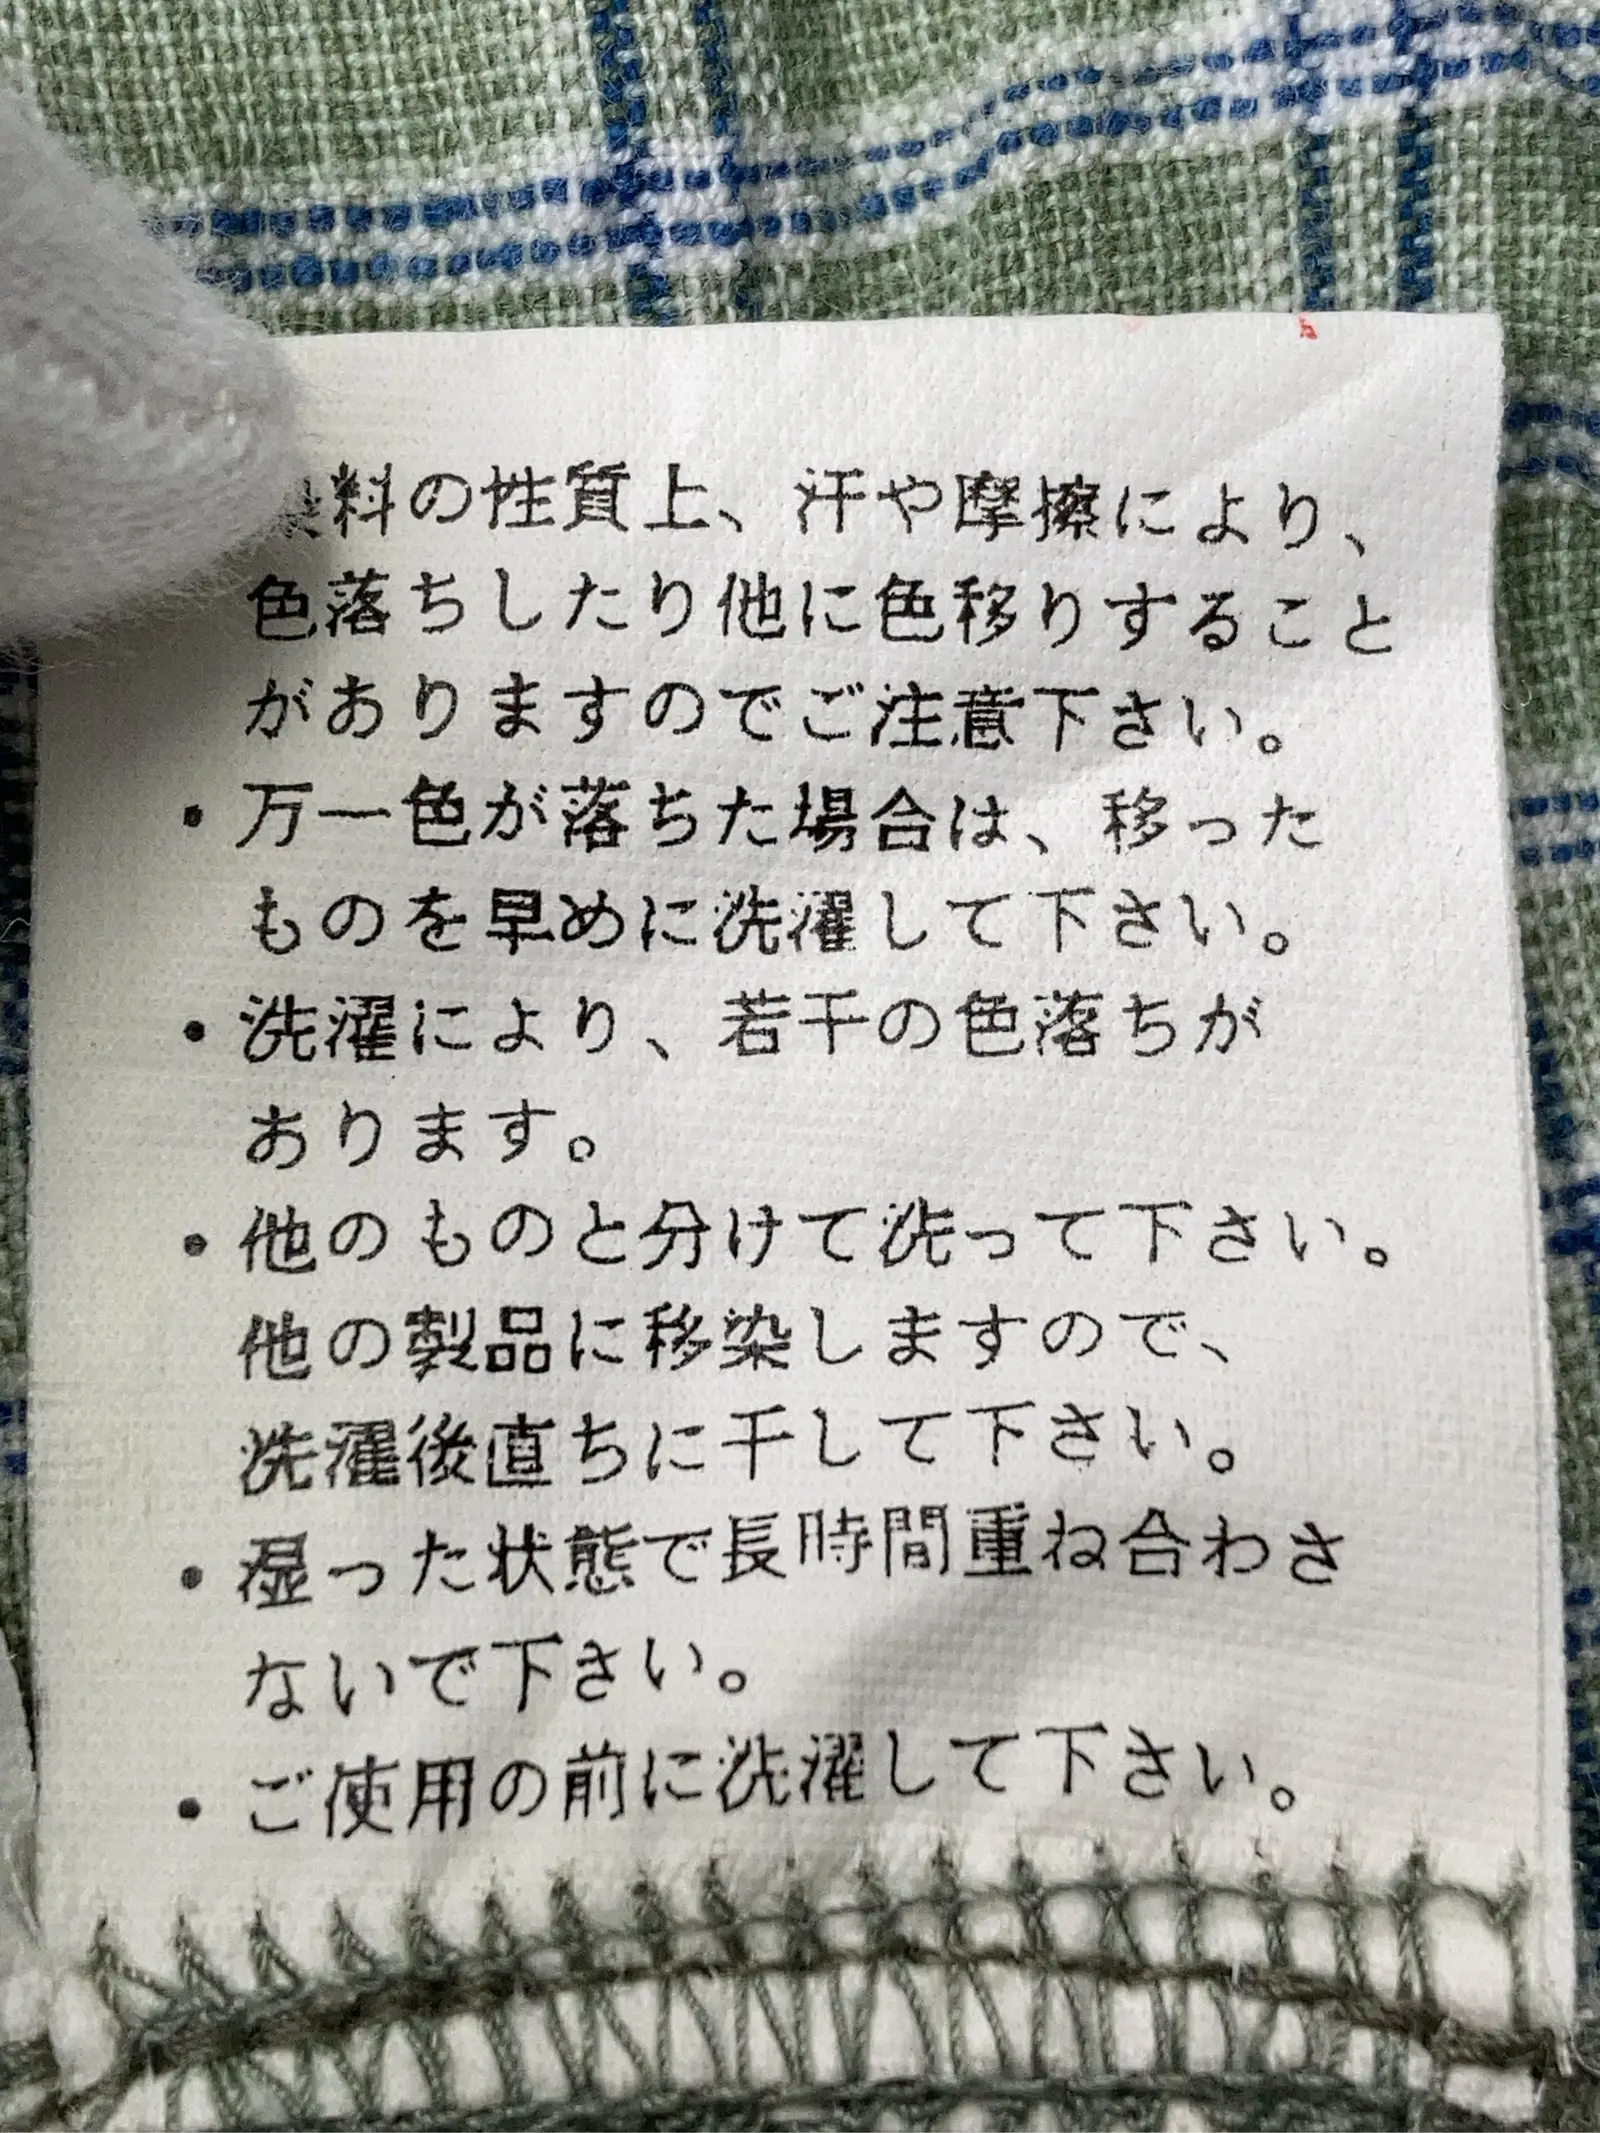 料の性質上、汗や摩擦により、
色落ちしたり他に色移りすること
がありますのでご注意下さい。
・万一色が落ちた場合は、移った
ものを早めに洗濯して下さい。
・洗濯により、若干の色落ちが
あります。
・他のものと分けて洗って下さい。
他の製品に移染しますので、
洗濯後直ちに干して下さい。
・湿った状態で長時間重ね合わさ
ないで下さい。
・ご使用の前に洗濯して下さい。